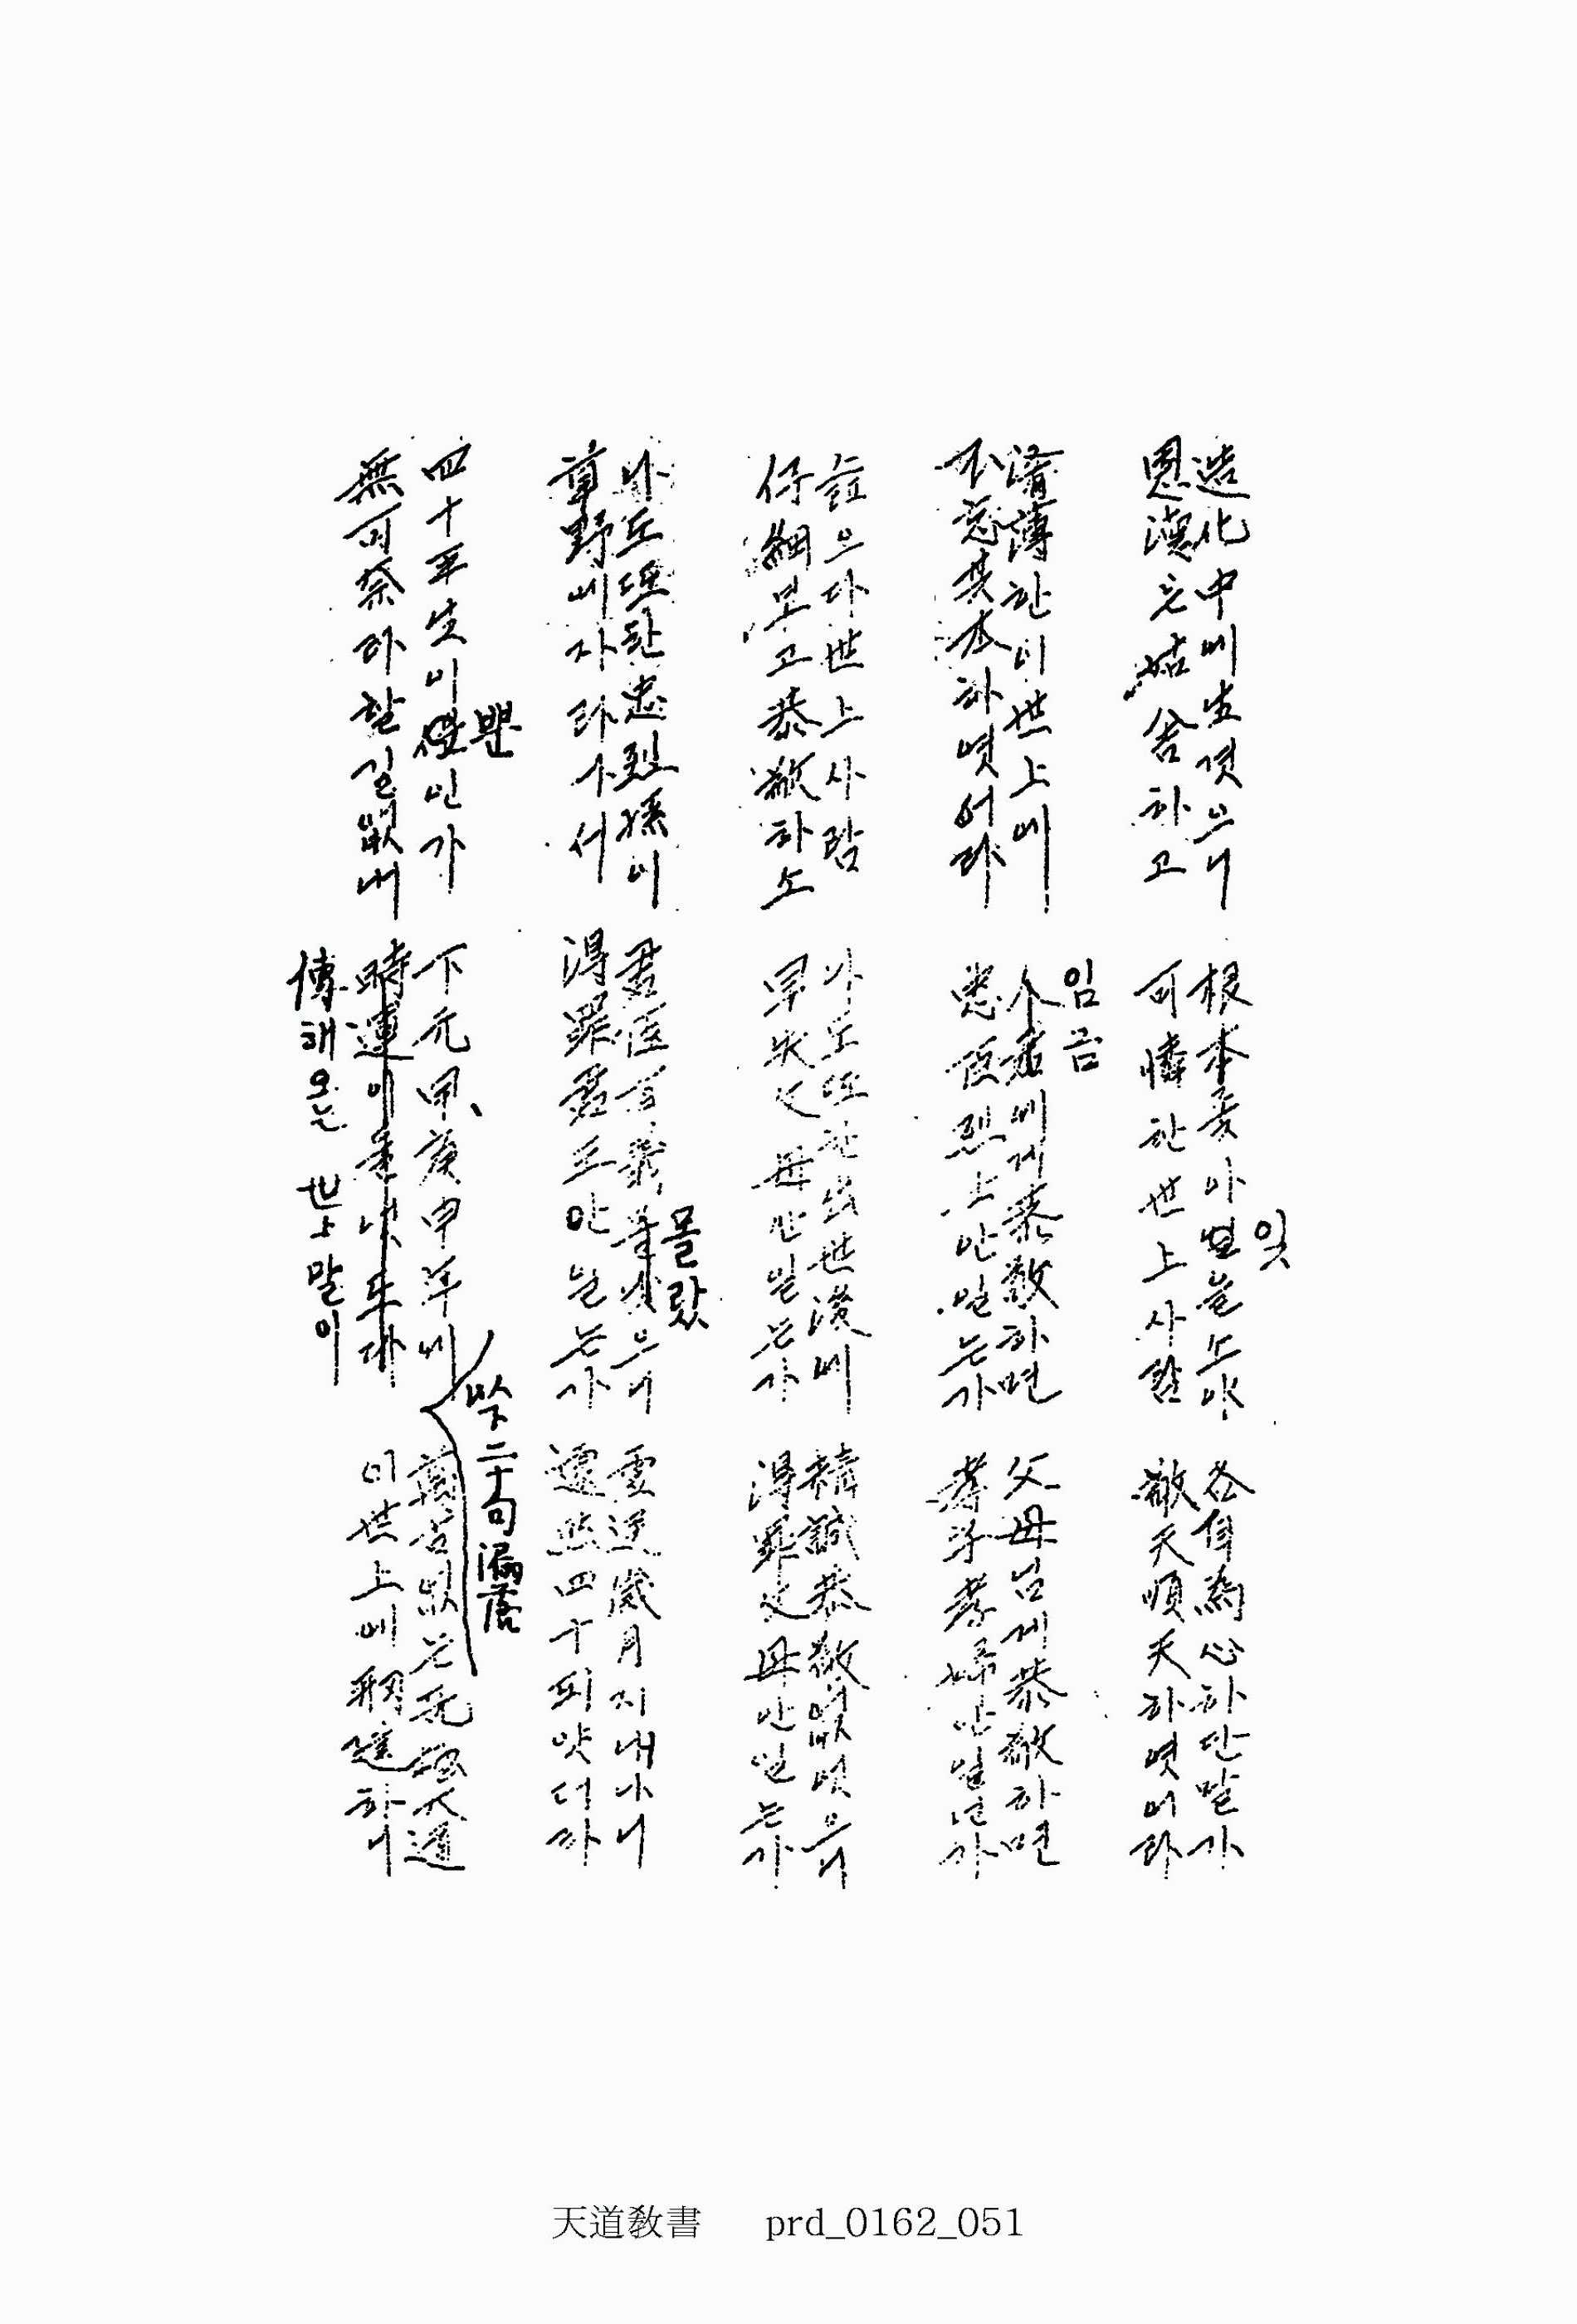 造化中에生겻으니
恩德은姑舍하고
根本좃아잇을소냐
잊
可憐한世上사람
各自爲心하단말가
敬天順天하엿어라
淆薄한이世上에
不忘其本하엿어라
임금
人君에게恭敬하면
忠臣烈士안일는가
父母님게恭敬하면
孝子孝婦안일넌가
슲으다世上사람
仔細보고恭敬하소
나도또한出世後에
早失父母안일는가
精誠恭敬없엇으니
得罪父母안일는가
나도또한忠烈孫이
草野에자라나서
君臣有義몰랐으니
得罪君王안일는가
虛送歲月지내나니
遽然四十되얏더라
四十平生이뿐인가
뿐
無可奈라할길없네
下元甲、庚申年에
時運이
傳해오는世上말이
以下二十句漏落
萬古없는無極大道
이世上에創建하니
天道敎書 prd_0162_051